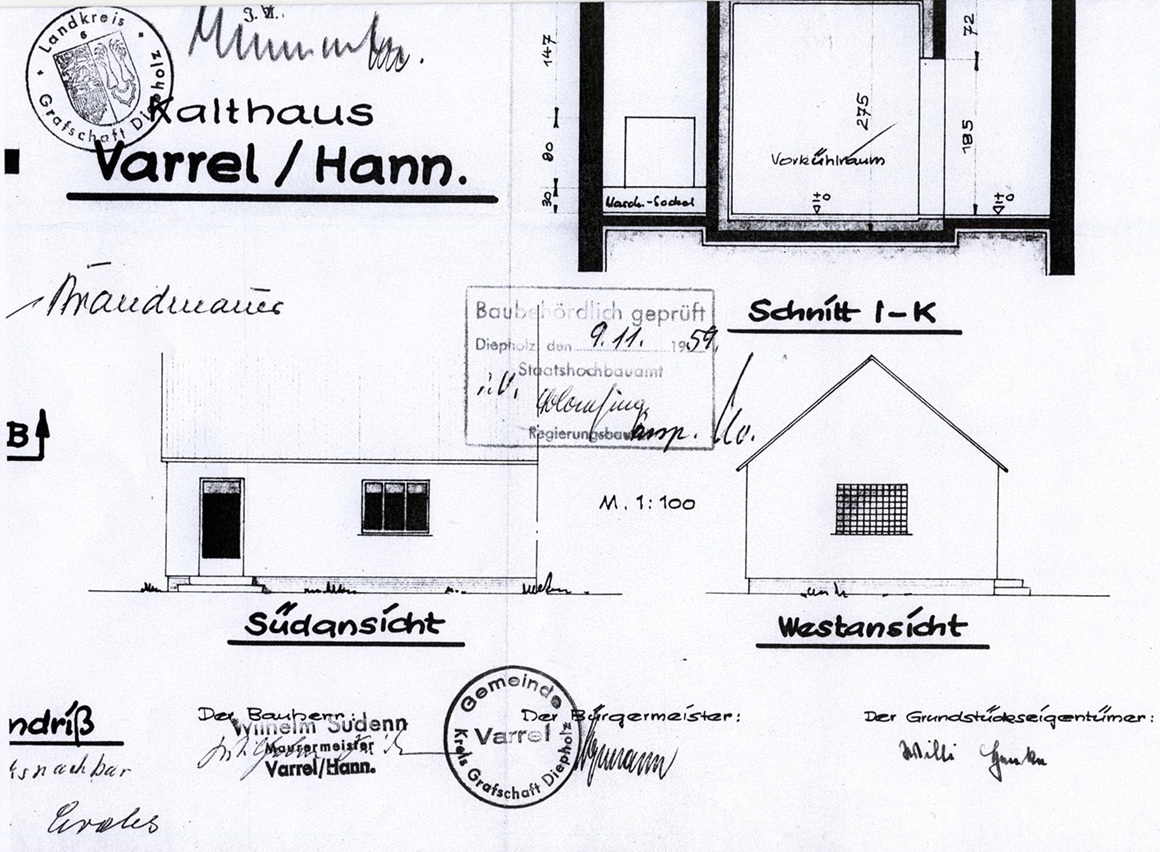 Landkreis
6
Grafschaft Diepholz
J. V.
Kalthaus
Varrel / Hann.
147
80
30
Masch.-Sockel
275
Vorkühlraum
72
185
± 0
± 0
Brandmauer
Schnitt I-K
Baubehördlich geprüft
Diepholz, den 9.11. 1959
Staatshochbauamt
i.V.
Regierungsbau
B
M. 1:100
Südansicht
Westansicht
ndriß
Der Bauherr:
Wilhelm Südenn
Maurermeister
Varrel/Hann.
Gemeinde
Varrel
Kreis Grafschaft Diepholz
Der Bürgermeister:
Der Grundstückseigentümer:
Willi